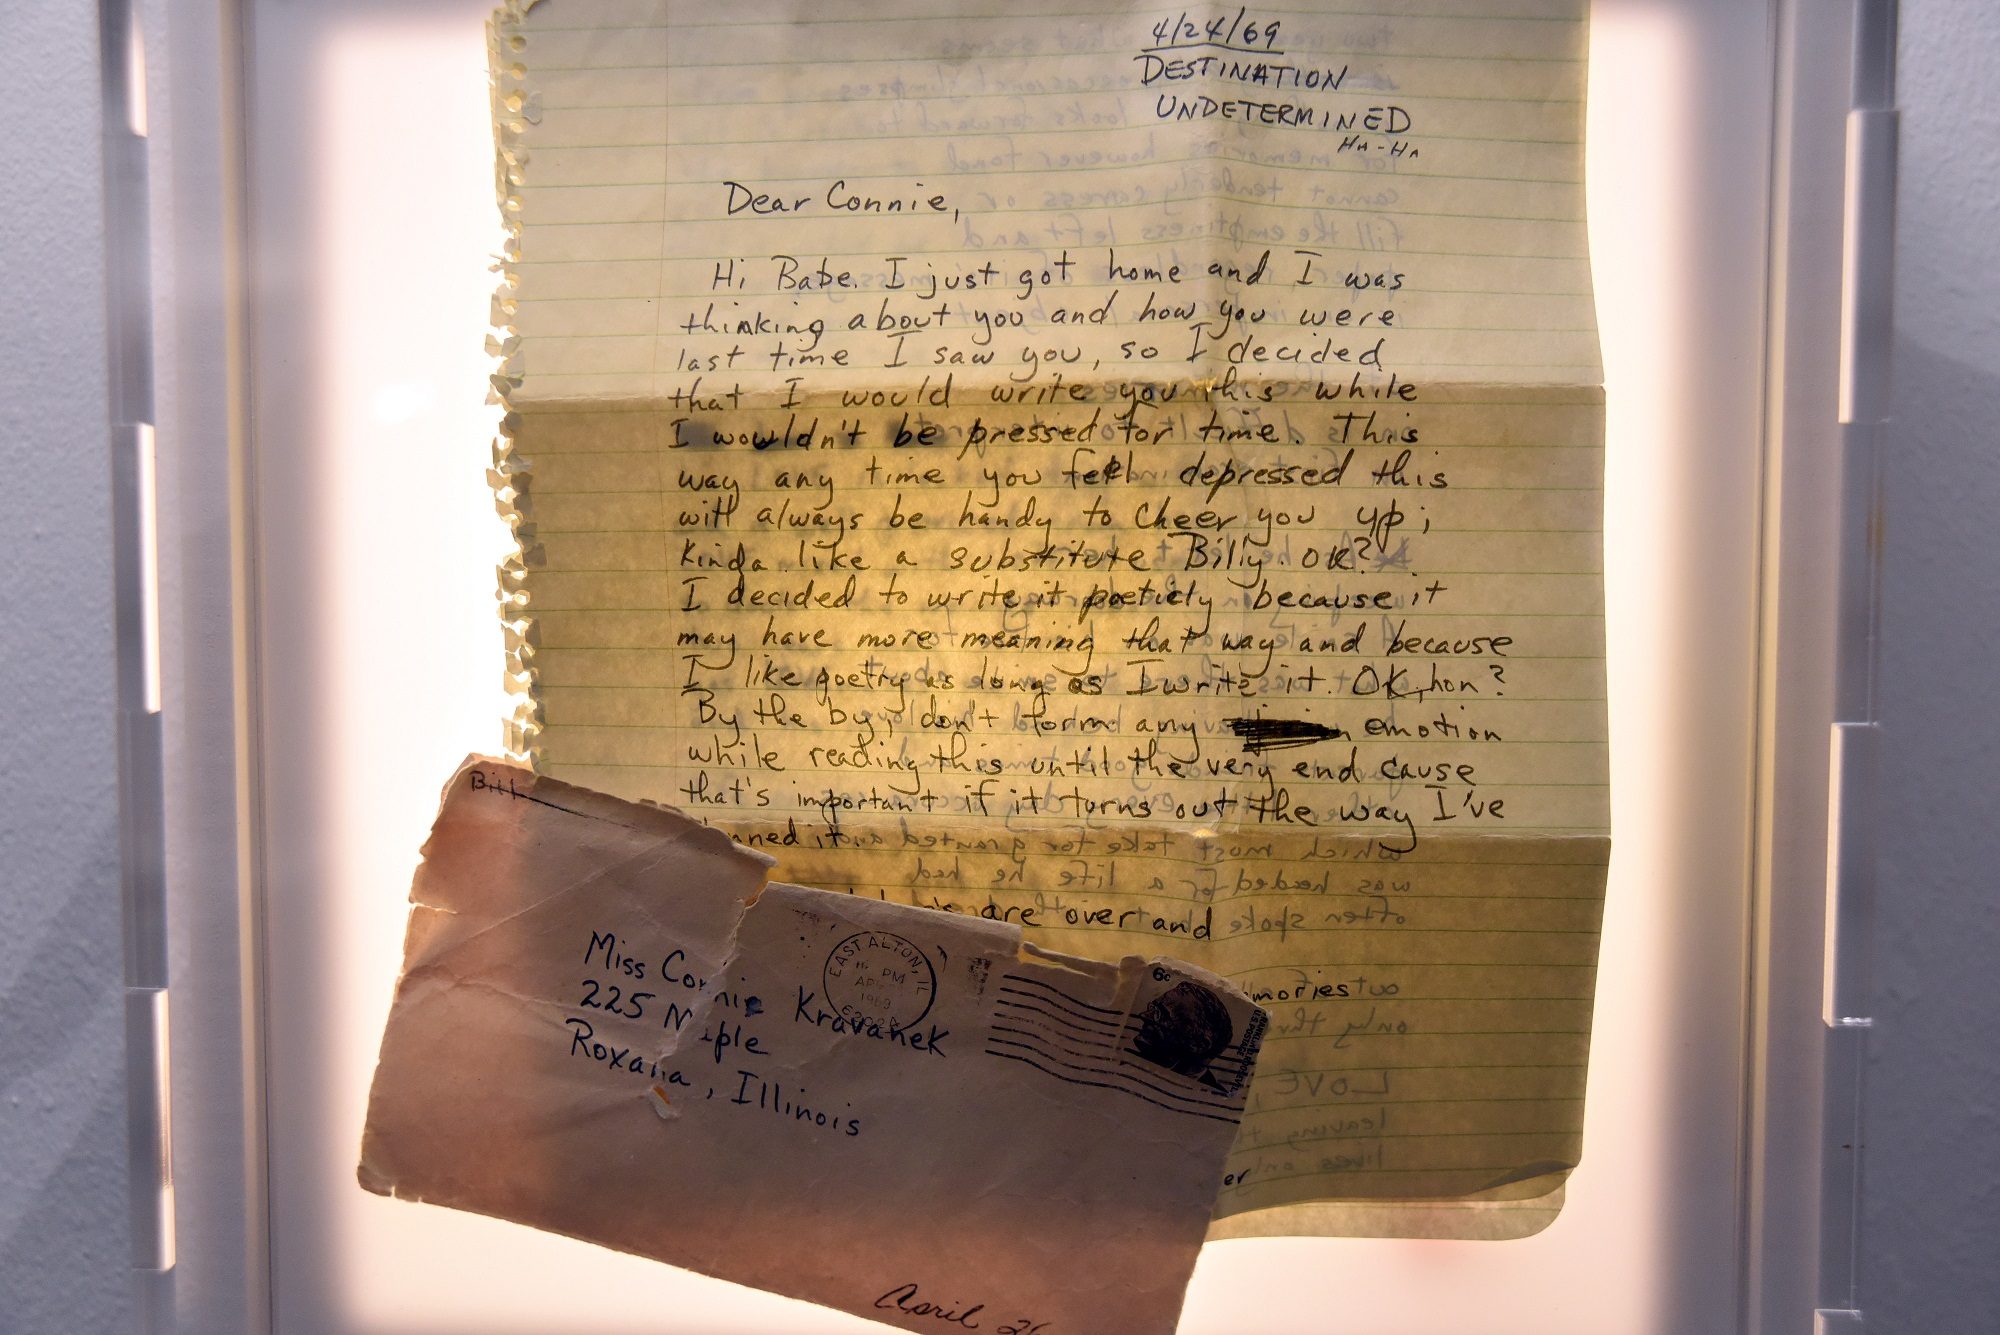 4/24/69
DESTINATION
UNDETERMINED
HA-HA
Dear Connie,
Hi Babe. I just got home and I was
thinking about you and how you were
last time I saw you, so I decided
that I would write you this while
I wouldn't be pressed for time. This
way any time you feel depressed this
will always be handy to cheer you up;
kinda like a substitute Billy. OK?
I decided to write it poeticly because it
may have more meaning that way and because
I like poetry as long as I write it. OK, hon?
By the by, don't form any emotion
while reading this until the very end cause
that's important if it turns out the way I've
nned it.
are over and
mories
er
Bill
Miss Connie Kravanek
225 Maple
Roxana, Illinois
EAST ALTON, IL
PM
1969
6¢
U.S. POSTAGE
April